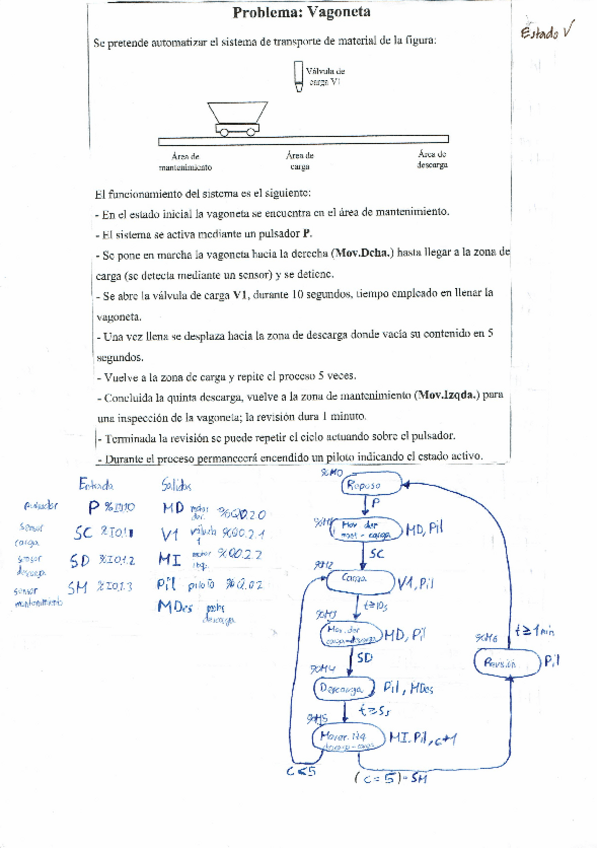 Problema: Vagoneta
Estado V
Se pretende automatizar el sistema de transporte de material de la figura:
Válvula de
carga V1
Área de
mantenimiento
Área de
carga
Área de
descarga
El funcionamiento del sistema es el siguiente:
- En el estado inicial la vagoneta se encuentra en el área de mantenimiento.
- El sistema se activa mediante un pulsador P.
- Se pone en marcha la vagoneta hacia la derecha (Mov.Dcha.) hasta llegar a la zona de
carga (se detecta mediante un sensor) y se detiene.
- Se abre la válvula de carga V1, durante 10 segundos, tiempo empleado en llenar la
vagoneta.
- Una vez llena se desplaza hacia la zona de descarga donde vacía su contenido en 5
segundos.
- Vuelve a la zona de carga y repite el proceso 5 veces.
- Concluida la quinta descarga, vuelve a la zona de mantenimiento (Mov.Izqda.) para
una inspección de la vagoneta; la revisión dura 1 minuto.
- Terminada la revisión se puede repetir el ciclo actuando sobre el pulsador.
- Durante el proceso permanecerá encendido un piloto indicando el estado activo.
Entrada Salidas
pulsador P MD
sensor carga SC %I0.1.1 V1 válvula %Q0.2.1
sensor descarga SD %I0.1.2 MI motor izq. %Q0.2.2
sensor mantenimiento SM %I0.1.3 Pil piloto
MDes descarga
%M0
Reposo
P
Mov der
mant - carga
MD, Pil
SC
%M2
Carga
V1, Pil
t≥10s
%M3
Mov. der
MD, Pil
SD
%M4
Descarga
Pil, MDes
t≥5s
%M5
Mover. izq
MI, Pil, c+1
c<5
(c=5)·SM
%M6
Revisión
Pil
t≥1min